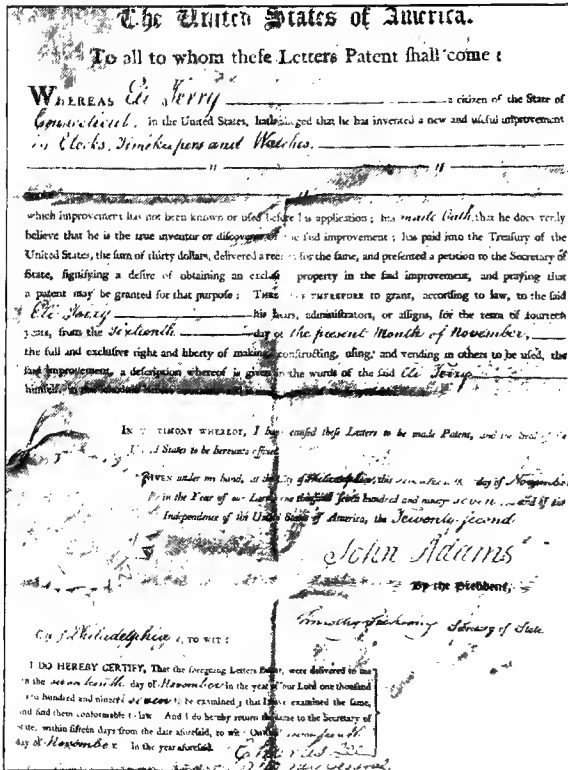 The United States of America.
To all to whom theſe Letters Patent ſhall come :
WHEREAS Eli Terry a citizen of the State of
Connecticut, in the United States, hath alleged that he has invented a new and uſeful improvement
in Clocks, Timekeepers and Watches.
" "
which improvement has not been known or uſed before his application ; has made Oath, that he does verily
believe that he is the true inventor or diſcoverer of the ſaid improvement ; has paid into the Treaſury of the
United States, the ſum of thirty dollars, delivered a receipt for the ſame, and preſented a petition to the Secretary of
State, ſignifying a deſire of obtaining an excluſive property in the ſaid improvement, and praying that
a patent may be granted for that purpoſe : THESE ARE THEREFORE to grant, according to law, to the ſaid
Eli Terry his heirs, adminiſtrators, or aſſigns, for the term of fourteen
years, from the Sixteenth day of the present Month of November,
the full and excluſive right and liberty of making, conſtructing, uſing, and vending to others to be uſed, the
ſaid improvement, a deſcription whereof is given in the words of the ſaid Eli Terry
himſelf, in the
IN TESTIMONY WHEREOF, I have cauſed theſe Letters to be made Patent, and the Seal of the
United States to be hereunto affixed.
GIVEN under my hand, at the City of Philadelphia, this seventeenth day of November
in the Year of our Lord, one thouſand ſeven hundred and ninety seven and of the
Independence of the United States of America, the Twenty-second
John Adams
By the Preſident,
Timothy Pickering Secretary of State
City of Philadelphia, TO WIT :
I DO HEREBY CERTIFY, That the foregoing Letters Patent, were delivered to me
on the seventeenth day of November in the year of our Lord one thouſand
ſeven hundred and ninety seven to be examined ; that I have examined the ſame,
and find them conformable to law. And I do hereby return the ſame to the Secretary of
State, within fifteen days from the date aforeſaid, to wit : On this seventeenth
day of November In the year aforeſaid.
Charles Lee